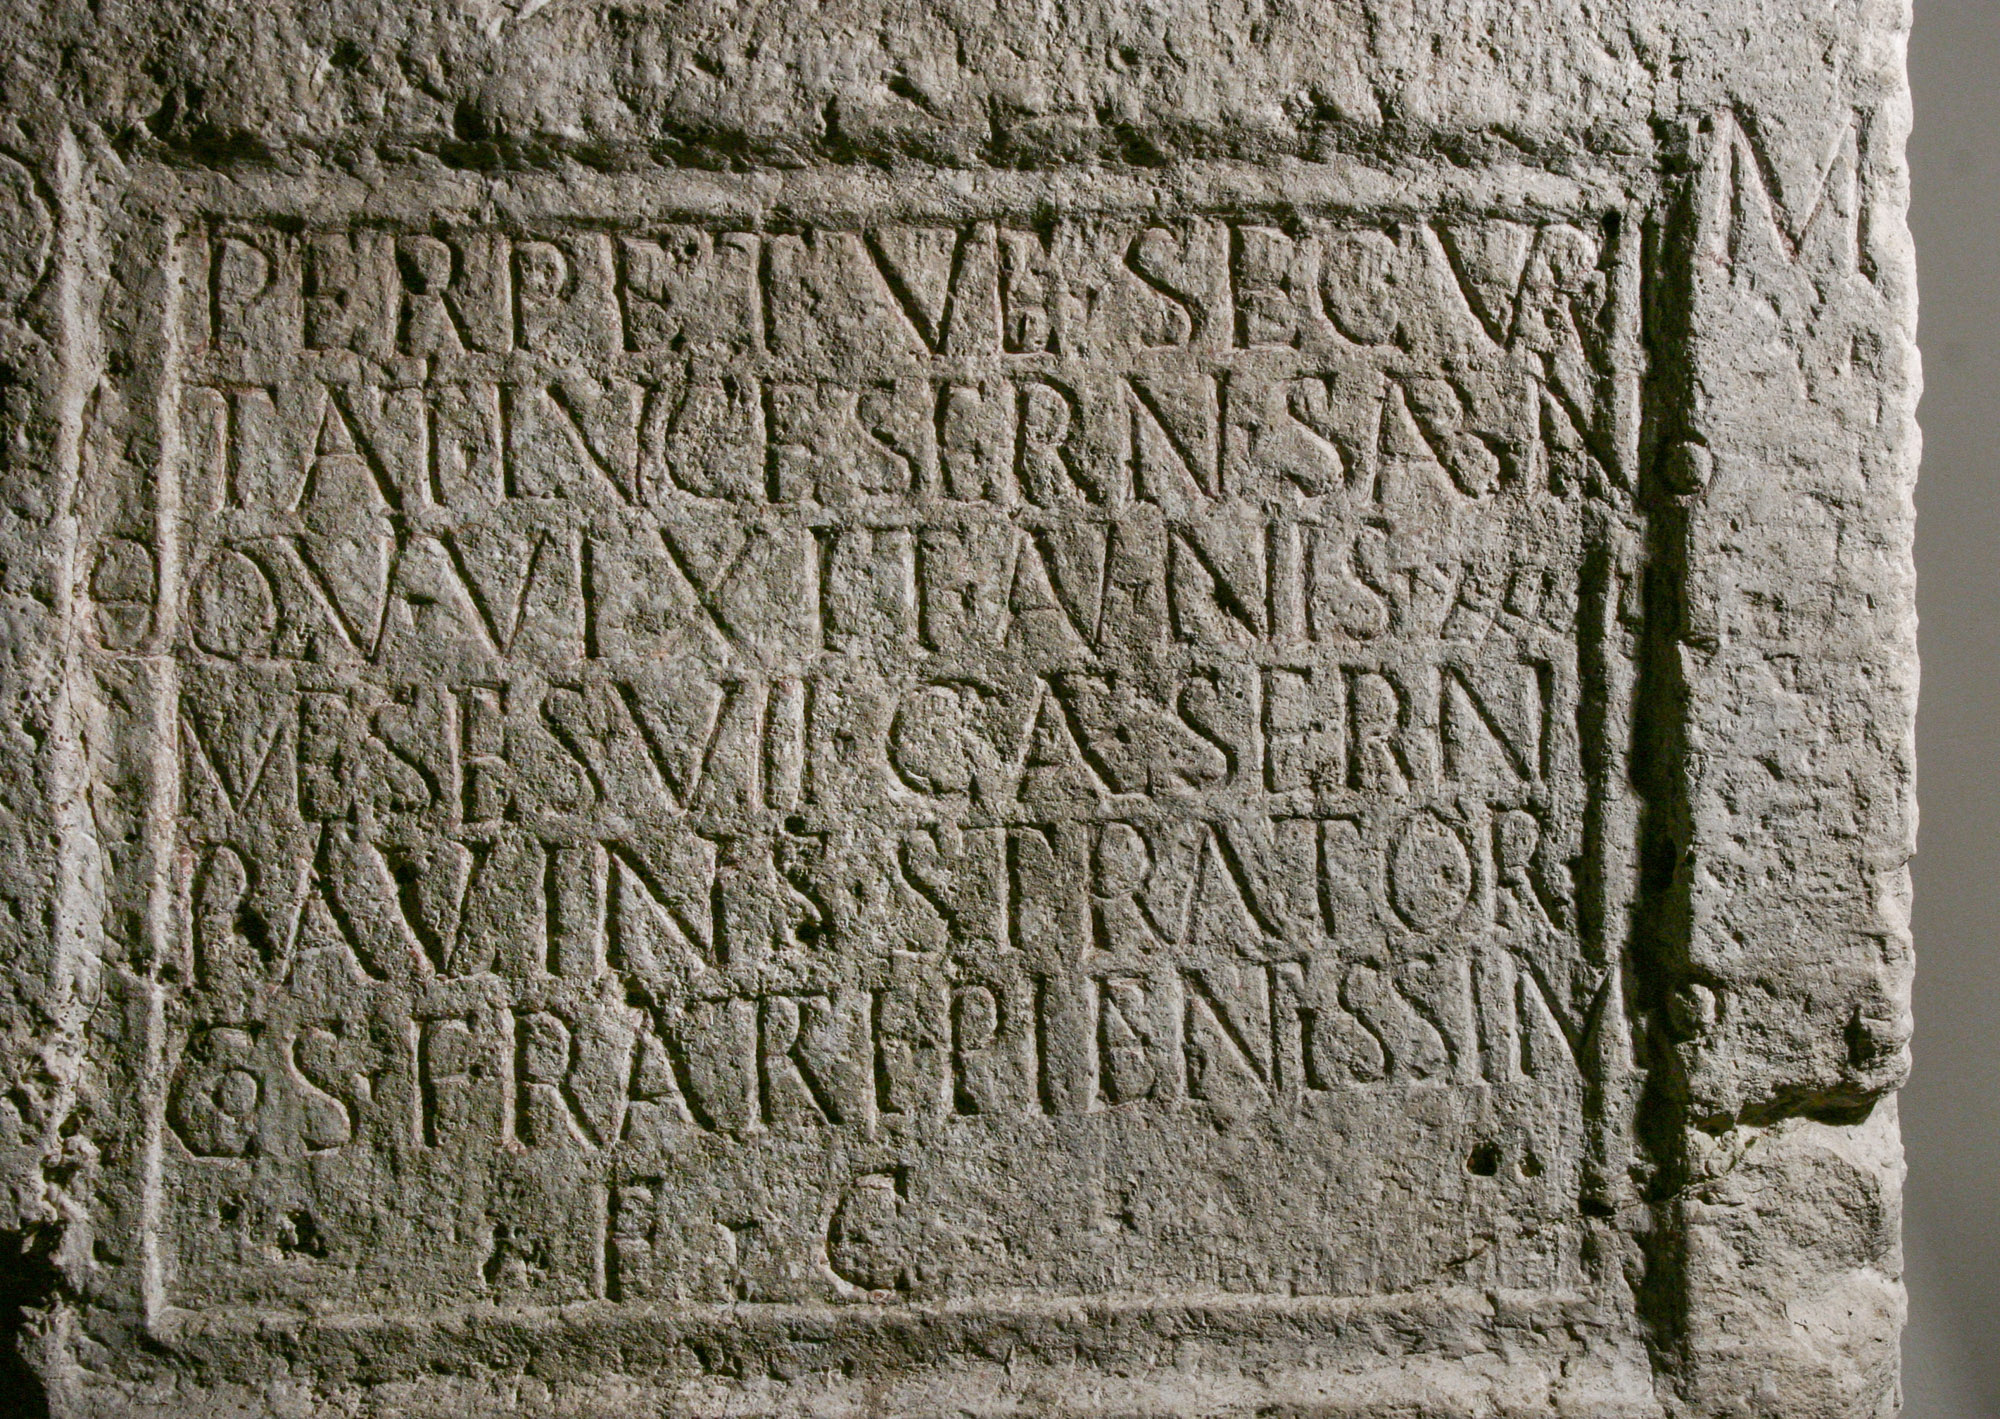 D M
PERPETVE SECVRI
TATI INGESERNI SABIN
QVI VIXIT ANNIS XX
MESES VII CAESERNI
RAVINVS STRATOR
COS FRATRI PIENISSIM
F C